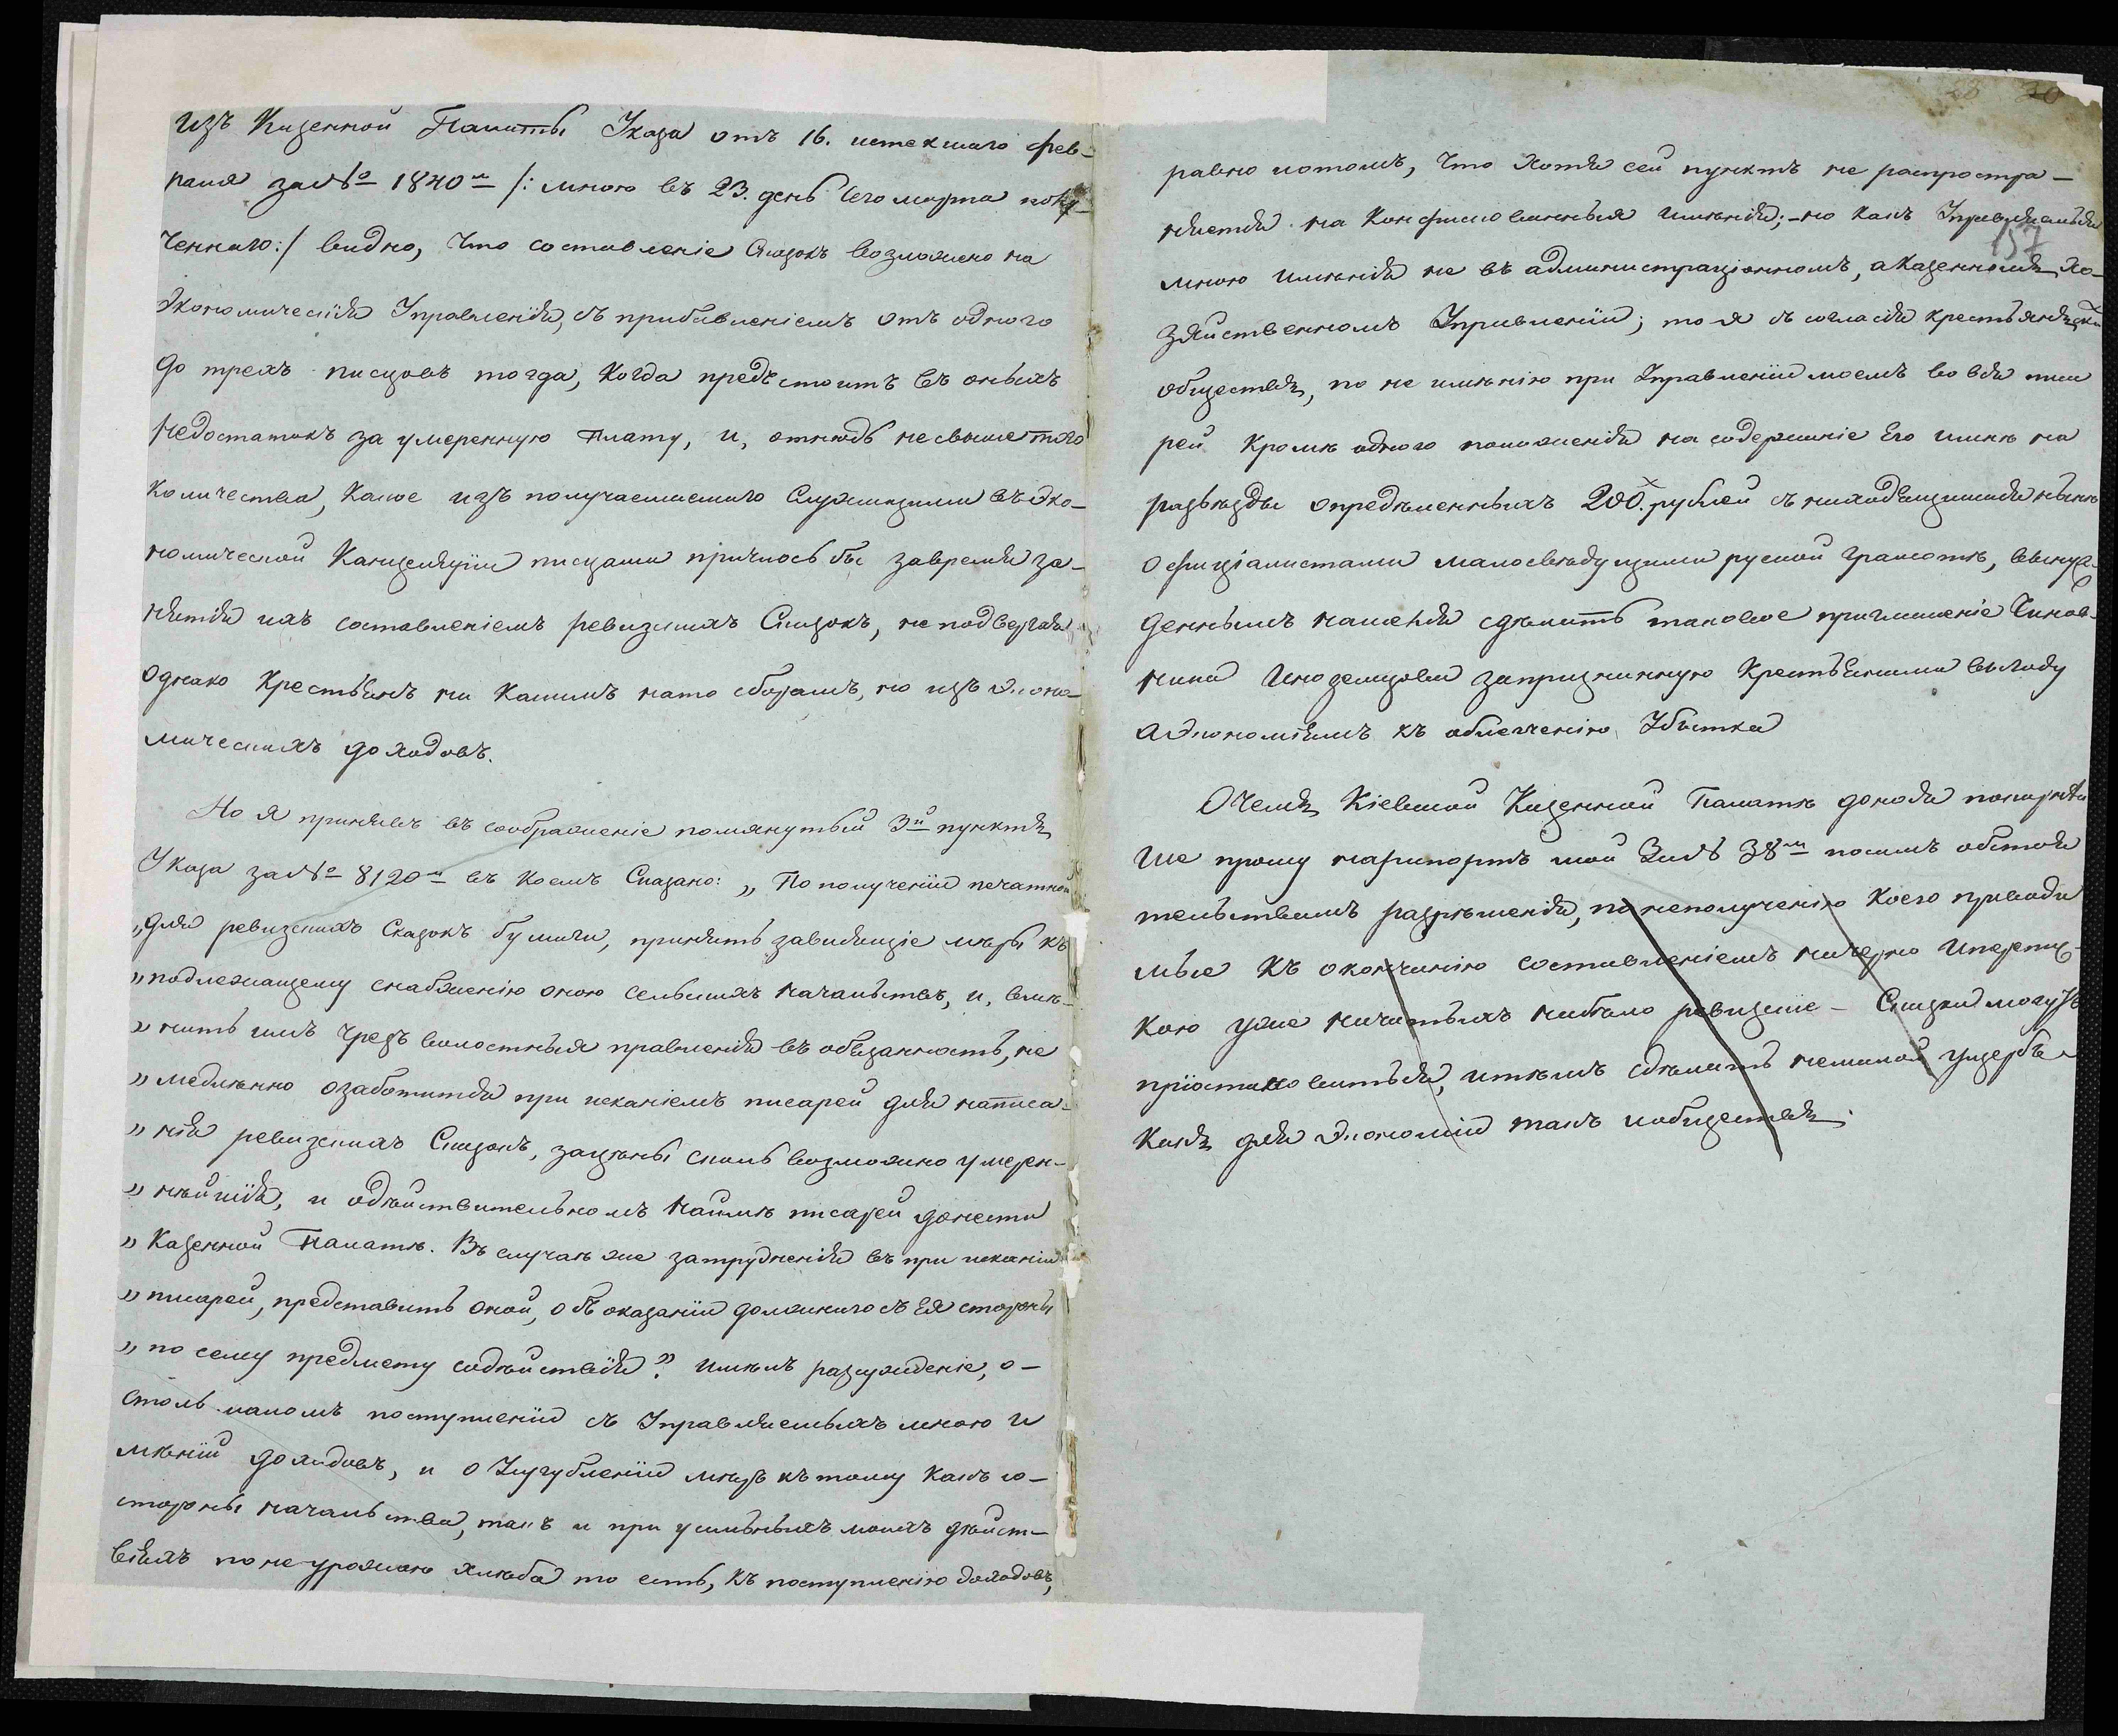 изъ Казенной Палаты Указа отъ 16. истекшаго фев-
раля за № 1840м /: мною въ 23. день сего марта полу-
ченнаго:/ видно, что составленіе сказокъ возложено на
Экономическія Управленія, съ прибавленіемъ отъ одного
до трехъ писцовъ тогда, когда предстоитъ въ оныхъ
недостатокъ за умеренную плату, и, отнюдь не свыше того
количества, какое изъ получаемаемаго служащими въ Эко-
номической Канцеляріи писцами пришлось бы за время за-
нятія ихъ составленіемъ ревизскихъ Сказокъ, не подвергая
однако крестьянъ ни какимъ на то сборамъ, но изъ эконо-
мическихъ доходовъ.
Но я принявъ въ соображеніе помянутый 3й пунктъ
Указа за № 8120м въ коемъ сказано: „По полученіи печатной
„для ревизскихъ Сказокъ бумаги, принять зависящіе меры къ
„подлежащему снабженію оною сельскихъ начальствъ, и, вмѣ-
„нить имъ чрезъ волостныя правленія въ обязанность, не
„медлѣнно озаботится пріисканіемъ писарей для написа-
„нія ревизскихъ Сказокъ, за цѣны сколь возможно умерен-
„нѣйшія, и о дѣйствительномъ наймѣ писарей донести
„Казенной Палатѣ. Въ случаѣ же затрудненія въ пріисканіи
„писарей, представить оной, объ оказаніи должнаго съ Ея стороны
„по сему предмету содѣйствія". имѣлъ разсужденіе, о-
столь маломъ поступленіи съ Управляемыхъ мною и
мѣній доходовъ, и о Усугубленіи меръ къ тому какъ со-
стороны начальства, такъ и при усильныхъ моихъ дѣйст-
віяхъ по не урожаю хлѣба то есть, къ поступленію доходовъ,
равно и о томъ, что хотя сей пунктъ не распростра-
няется на конфискованныя имѣнія; - но какъ Управляемыя
мною имѣнія не въ администраціонномъ, а казенномъ хо-
зяйственномъ Управленіи; то я съ согласія крестьянскихъ
обществъ, по не имѣнію при Управленіи моемъ во все писа
рей кромѣ одного положенія на содержаніе Его имѣя на
разъѣзды опредѣленныхъ 200. рублей съ находящимися нынѣ
офиціалистами малосвѣдущими руской грамотѣ, вынуж-
деннымъ нашелся сдѣлать таковое приглашеніе Чинов-
ника Иноземцова за признанную крестьянами выгоду
а Экономіямъ къ облегченію Убытка
О чемъ Кіевской Казенной Палатѣ донося покорнѣй
ше прошу на рапортъ мой за № 38м по симъ обстоя
тельствамъ разрѣшенія, по неполученію коего приводи
мые къ окончанію составленіемъ начерно и перепис-
кою уже начатыхъ набѣло ревизскіе - Сказки могутъ
пріостановиться, и тѣмъ сдѣлать немалой ущербъ -
какъ для экономіи такъ и обществъ.
157
30